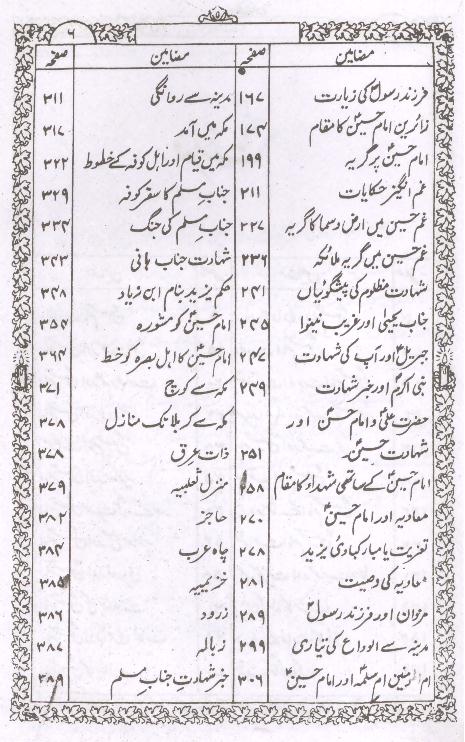 ۵
۶
مضامین صفحہ
فرزند رسولؐ کی زیارت ۱۶۷
زائرین امام حسینؑ کا مقام ۱۷۴
امام حسینؑ پر گریہ ۱۹۹
غم انگیز حکایات ۲۱۱
غم حسین میں ارض و سما کا گریہ ۲۲۷
غم حسین میں گریہ ملائکہ ۲۳۶
شہادت مظلوم کی پیشگوئیاں ۲۴۱
جناب یحییٰؑ اور غریب نینوا ۲۴۵
جبریلؑ اور آپ کی شہادت ۲۴۷
نبی اکرمؐ اور خبر شہادت ۲۴۹
حضرت علیؑ و امام حسنؑ اور
شہادت حسینؑ ۲۵۱
امام حسینؑ کے ساتھی شہداء کا مقام ۲۵۸
معاویہ اور امام حسینؑ ۲۷۰
تعزیت یا مبارکبادی یزید ۲۷۸
معاویہ کی وصیت ۲۸۱
مروان اور فرزند رسولؐ ۲۸۹
مدینہ سے الوداع کی تیاری ۲۹۹
ام المومنین ام سلمہؓ اور امام حسینؑ ۳۰۶
مضامین صفحہ
مدینہ سے روانگی ۳۱۱
مکہ میں آمد ۳۱۷
مکہ میں قیام اور اہل کوفہ کے خطوط ۳۲۲
جناب مسلم کا سفر کوفہ ۳۲۹
جناب مسلم کی جنگ ۳۳۴
شہادت جناب ہانی ۳۴۳
حکم یزید بنام ابن زیاد ۳۴۸
امام حسینؑ کو مشورہ ۳۵۴
امام حسینؑ کا اہل بصرہ کو خط ۳۶۴
مکہ سے کوچ ۳۷۱
مکہ سے کربلا تک منازل ۳۷۸
ذات عرق ۳۷۸
منزل ثعلبیہ ۳۷۹
حاجز ۳۸۲
چاہ عرب ۳۸۴
خزیمیہ ۳۸۵
زرود ۳۸۶
زبالہ ۳۸۷
خبر شہادتِ جناب مسلم ۳۸۹